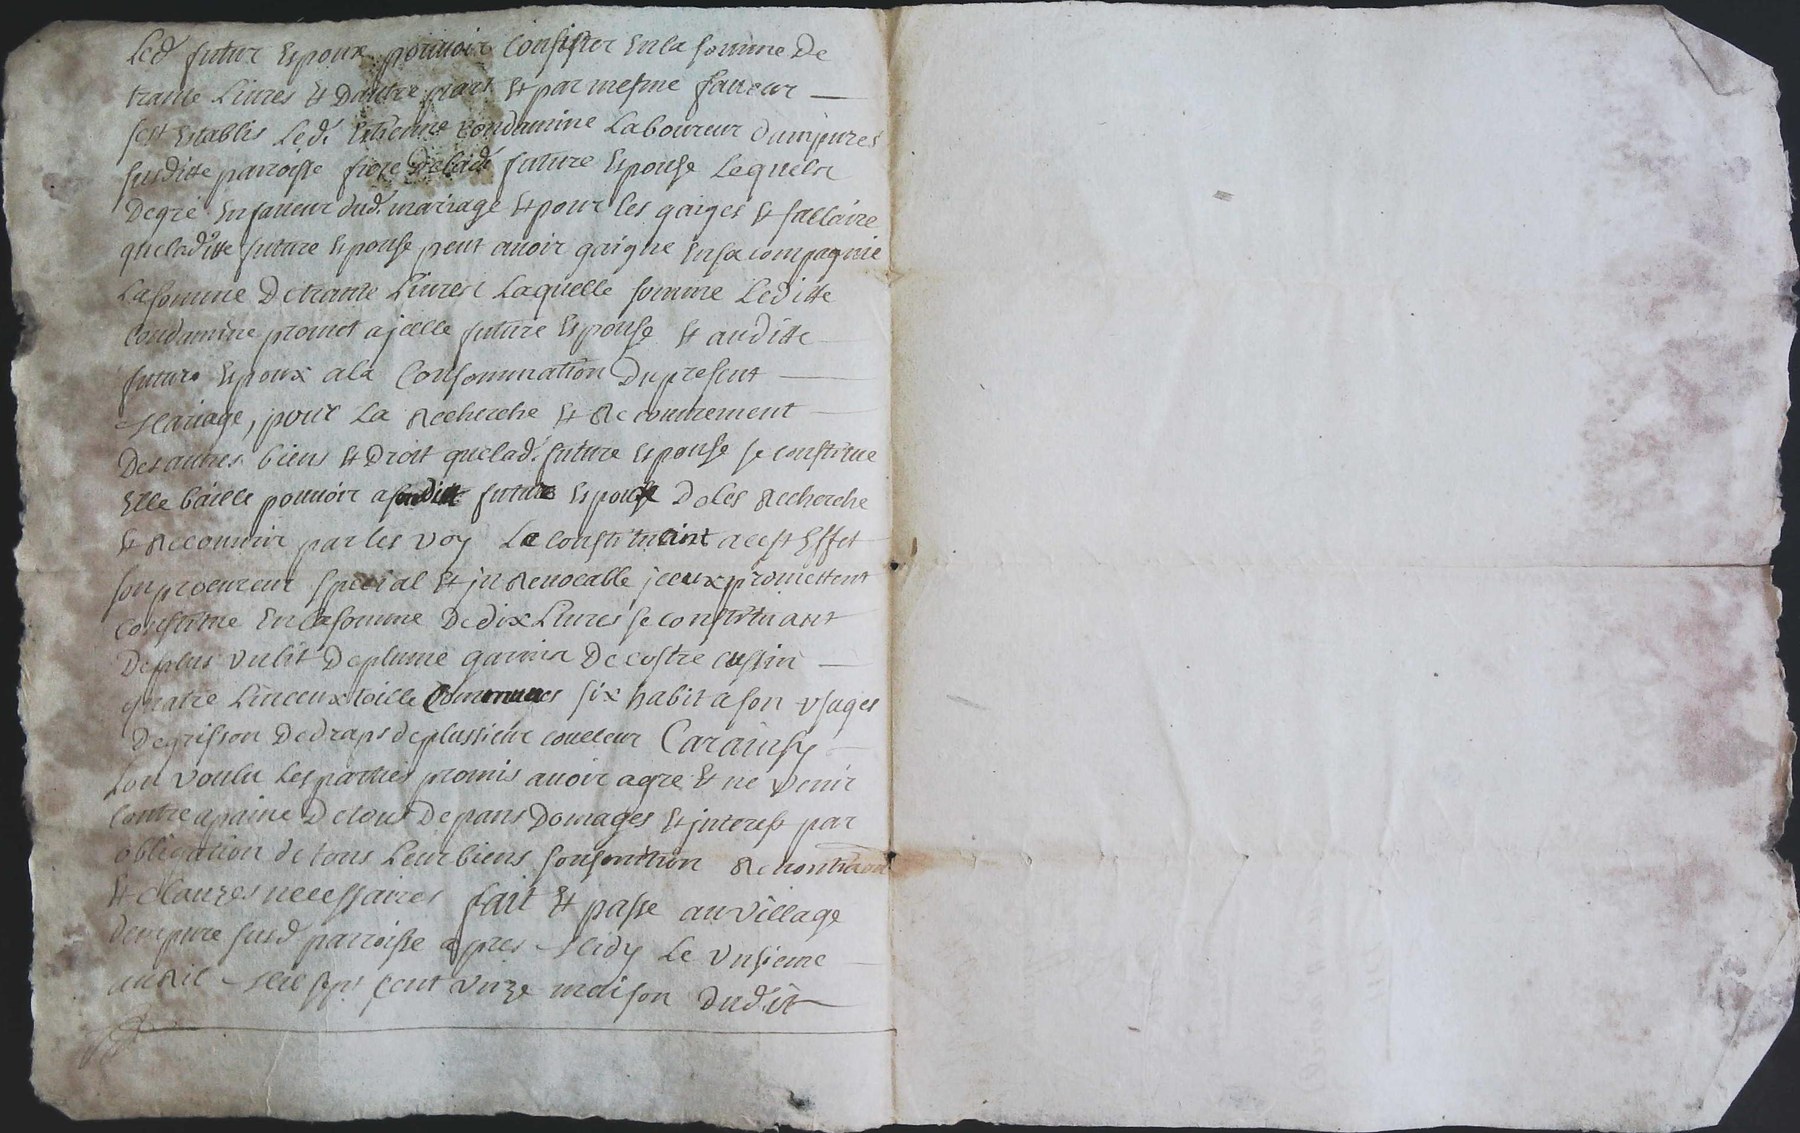 Led. futur Espoux pouvoir Consister En la somme De
trante Livres Et Dautre part Et par mesme faveur
sest Establis Led. Estienne Condamine Laboureur Dampures
susditte parroisse frere De lad. future Espouse Lequel
De gré En faveur dud. mariage Et pour les gaiges Et sallaire
que laditte future Espouse peut avoir gaigne En sa compagnie
La somme De trante Livres Laquelle somme Leditte
Condamine promet a jcelle future Espouse Et auditte
futur Espoux a la Consommation Du present
Mariage, pour La Recherche Et Recouvrement
Des autres biens Et Droit que lad. future Espouse se constitue
Elle baille pouvoir a sonditte futur Espoux De Les Recherche
Et Recouvrir par les voy Le constituant a cest Effet
son procureur special Et jnRevocable jceux promettent
constitue En la somme De dix Livres se constituant
De plus un lit De plume garnir De costre cussin
quatre Linceux toille Communes six habit a son usages
De grison De draps de plussieur coulleur Car ainsy
Lon voulu Les parties promis avoir agre Et ne venir
Contre a paine De tous Depans Domages Et jnterest par
obligation de tous Leur biens sousmition Renontiation
Et Clauzes necessaires fait Et passe au village
dempure susd. parroisse apres Midy Le unsieme
avril Mil sept cent unze maison Dudit